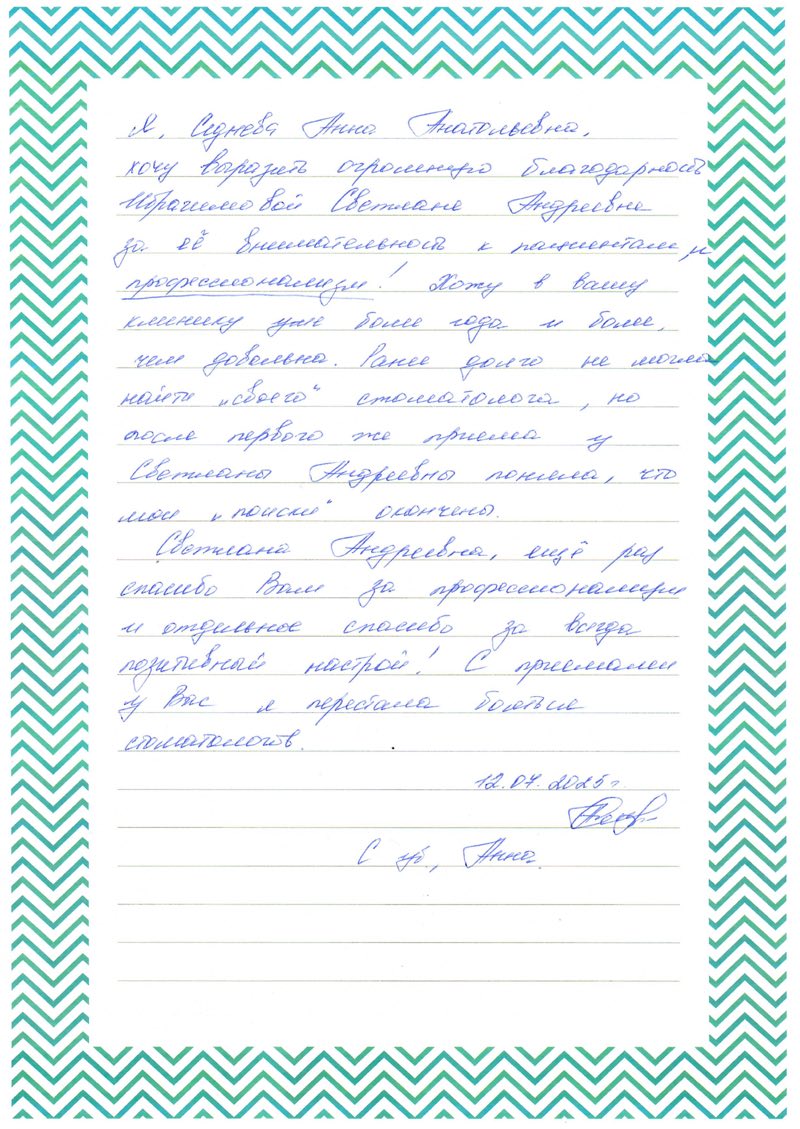 Я, Седнева Анна Анатольевна,
хочу выразить огромную благодарность
Ибрагимовой Светлане Андреевне
за её внимательность к пациентам и
профессионализм! Хожу в вашу
клинику уже более года и более,
чем довольна. Ранее долго не могла
найти „своего“ стоматолога, но
после первого же приема у
Светланы Андреевны поняла, что
мои „поиски“ окончены.
Светлана Андреевна, ещё раз
спасибо Вам за профессионализм
и отдельное спасибо за всегда
позитивный настрой! С приемами
у Вас я перестала бояться
стоматологов.
12.07.2025г.
С ув., Анна.